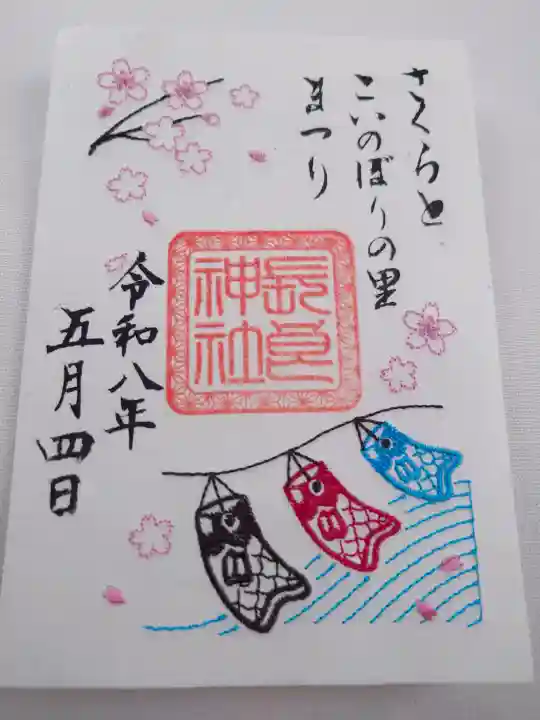 さくらと
こいのぼりの里
まつり
長良
神社
令和八年
五月四日